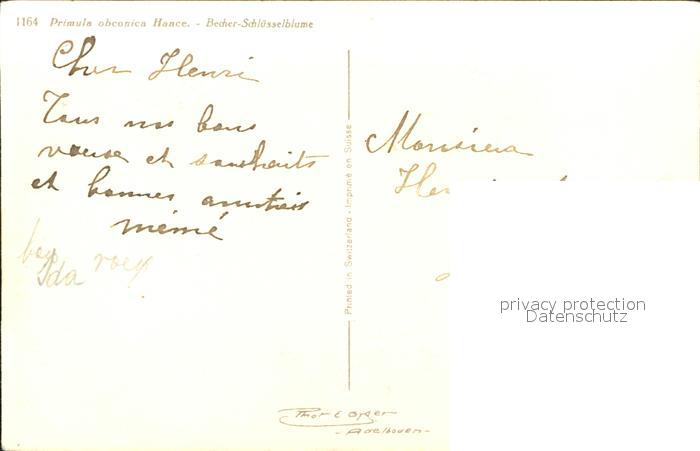 1164 Primula obconica Hance. - Becher-Schlüsselblume
Cher Henri
Tous nos bons
voeux et souhaits
et bonnes amitiés
mémé
Ida
Printed in Switzerland - Imprimé en Suisse
Monsieur
Phot E Gyger
- Adelboden -
privacy protection
Datenschutz